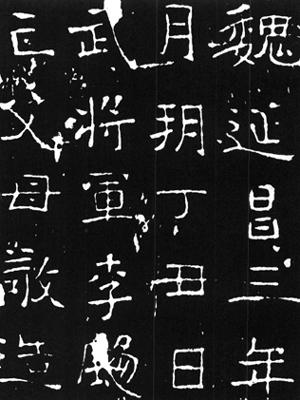 魏延昌三年
月玥丁丑日
武将軍李颺
亡父母敬造